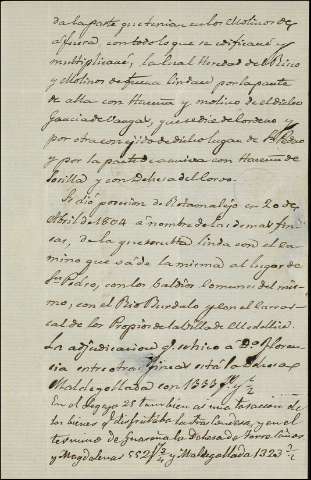 da la parte que tenian en los Molinos de
afuera, con todo lo que se edificare y
multiplicare, la cual Heredad del Risco
y Molinos de fuera lindan por la parte
de alta con Hacienda y molino del dicho
Garcia de Vargas, que se dice de Cordero y
por otra con ejido de dicho lugar de Sn. Pedro
y por la parte de arriba con Hacienda de
Sevilla y con Dehesa del Corvo.
Se dió posesion de Retamalejo en 20 de
Abril de 1804 á nombre de las demas fin-
cas, de la que resulta linda con el ca-
mino que vá de la misma al lugar de
Sn. Pedro, con los Baldios Comunes del mis-
mo, con el Rio Burdalo y con el Carras-
cal de los Propios de la Villa de Medellin
La adjudicacion q. se hizo a Da. Floren-
cia entre otras fincas está la Dehesa
Maldegollada con 1333 y ½
En el Legajo 25 tambien as una tasacion de
los bienes q. disfrutaba la y en el
termino de Guareña la Dehesa de Torre Caños
y Magdalenas 552 ½ y Maldegollada 1323 ½